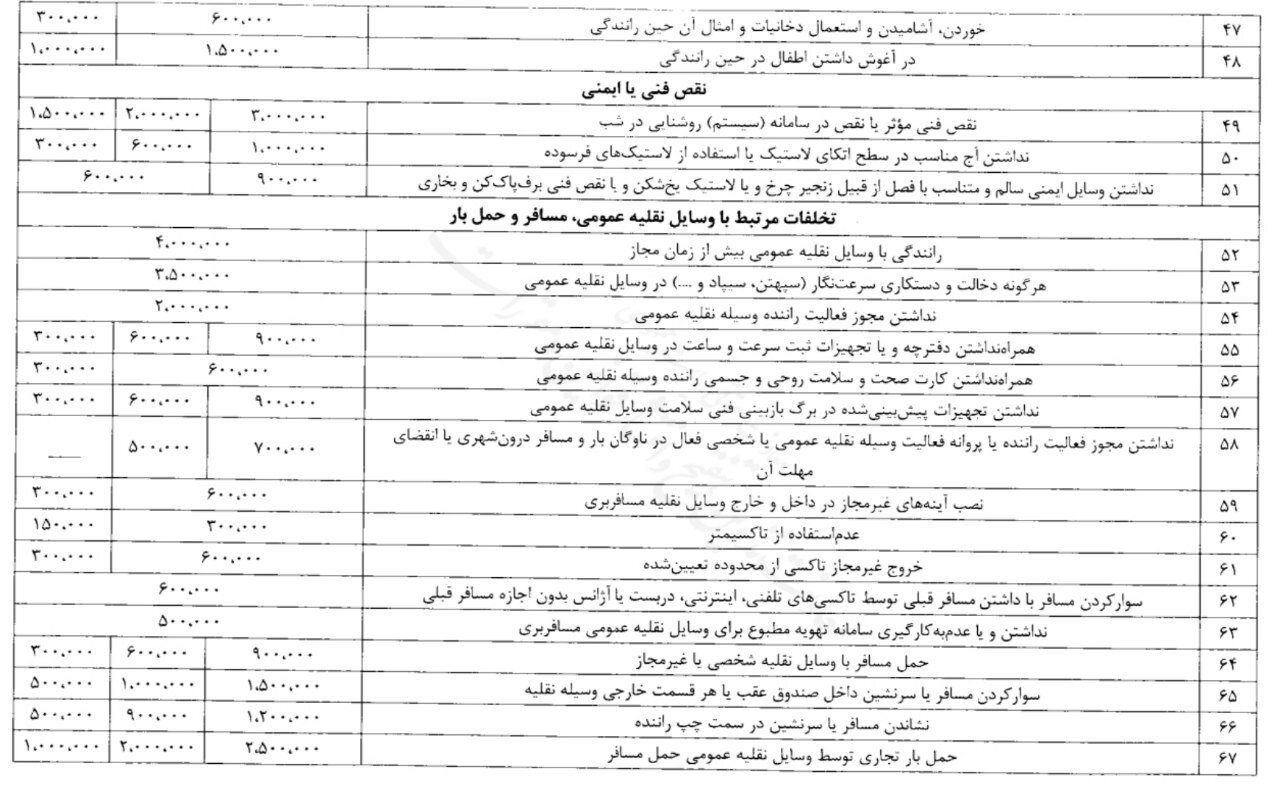 ۴۷ خوردن، آشامیدن و استعمال دخانیات و امثال آن حین رانندگی ۶۰۰،۰۰۰ ۳۰۰،۰۰۰
۴۸ در آغوش داشتن اطفال در حین رانندگی ۱،۵۰۰،۰۰۰ ۱،۰۰۰،۰۰۰
نقص فنی یا ایمنی
۴۹ نقص فنی مؤثر یا نقص در سامانه (سیستم) روشنایی در شب ۳،۰۰۰،۰۰۰ ۲،۰۰۰،۰۰۰ ۱،۵۰۰،۰۰۰
۵۰ نداشتن آج مناسب در سطح اتکای لاستیک یا استفاده از لاستیک‌های فرسوده ۱،۰۰۰،۰۰۰ ۶۰۰،۰۰۰ ۳۰۰،۰۰۰
۵۱ نداشتن وسایل ایمنی سالم و متناسب با فصل از قبیل زنجیر چرخ و یا لاستیک یخ‌شکن و یا نقص فنی برف‌پاک‌کن و بخاری ۹۰۰،۰۰۰ ۶۰۰،۰۰۰
تخلفات مرتبط با وسایل نقلیه عمومی، مسافر و حمل بار
۵۲ رانندگی با وسایل نقلیه عمومی بیش از زمان مجاز ۴،۰۰۰،۰۰۰
۵۳ هرگونه دخالت و دستکاری سرعت‌نگار (سپهتن، سیپاد و ....) در وسایل نقلیه عمومی ۳،۵۰۰،۰۰۰
۵۴ نداشتن مجوز فعالیت راننده وسیله نقلیه عمومی ۲،۰۰۰،۰۰۰
۵۵ همراه‌نداشتن دفترچه و یا تجهیزات ثبت سرعت و ساعت در وسایل نقلیه عمومی ۹۰۰،۰۰۰ ۶۰۰،۰۰۰ ۳۰۰،۰۰۰
۵۶ همراه‌نداشتن کارت صحت و سلامت روحی و جسمی راننده وسیله نقلیه عمومی ۶۰۰،۰۰۰ ۳۰۰،۰۰۰
۵۷ نداشتن تجهیزات پیش‌بینی‌شده در برگ بازبینی فنی سلامت وسایل نقلیه عمومی ۹۰۰،۰۰۰ ۶۰۰،۰۰۰ ۳۰۰،۰۰۰
۵۸ نداشتن مجوز فعالیت راننده یا پروانه فعالیت وسیله نقلیه عمومی یا شخصی فعال در ناوگان بار و مسافر درون‌شهری یا انقضای ۷۰۰،۰۰۰ ۵۰۰،۰۰۰ ــــ
مهلت آن
۵۹ نصب آینه‌های غیرمجاز در داخل و خارج وسایل نقلیه مسافربری ۶۰۰،۰۰۰ ۳۰۰،۰۰۰
۶۰ عدم‌استفاده از تاکسیمتر ۳۰۰،۰۰۰ ۱۵۰،۰۰۰
۶۱ خروج غیرمجاز تاکسی از محدوده تعیین‌شده ۶۰۰،۰۰۰ ۳۰۰،۰۰۰
۶۲ سوارکردن مسافر با داشتن مسافر قبلی توسط تاکسی‌های تلفنی، اینترنتی، دربست یا آژانس بدون اجازه مسافر قبلی ۶۰۰،۰۰۰
۶۳ نداشتن و یا عدم‌به‌کارگیری سامانه تهویه مطبوع برای وسایل نقلیه عمومی مسافربری ۵۰۰،۰۰۰
۶۴ حمل مسافر با وسایل نقلیه شخصی یا غیرمجاز ۹۰۰،۰۰۰ ۶۰۰،۰۰۰ ۳۰۰،۰۰۰
۶۵ سوارکردن مسافر یا سرنشین داخل صندوق عقب یا هر قسمت خارجی وسیله نقلیه ۱،۵۰۰،۰۰۰ ۱،۰۰۰،۰۰۰ ۵۰۰،۰۰۰
۶۶ نشاندن مسافر یا سرنشین در سمت چپ راننده ۱،۲۰۰،۰۰۰ ۹۰۰،۰۰۰ ۵۰۰،۰۰۰
۶۷ حمل بار تجاری توسط وسایل نقلیه عمومی حمل مسافر ۲،۵۰۰،۰۰۰ ۲،۰۰۰،۰۰۰ ۱،۰۰۰،۰۰۰